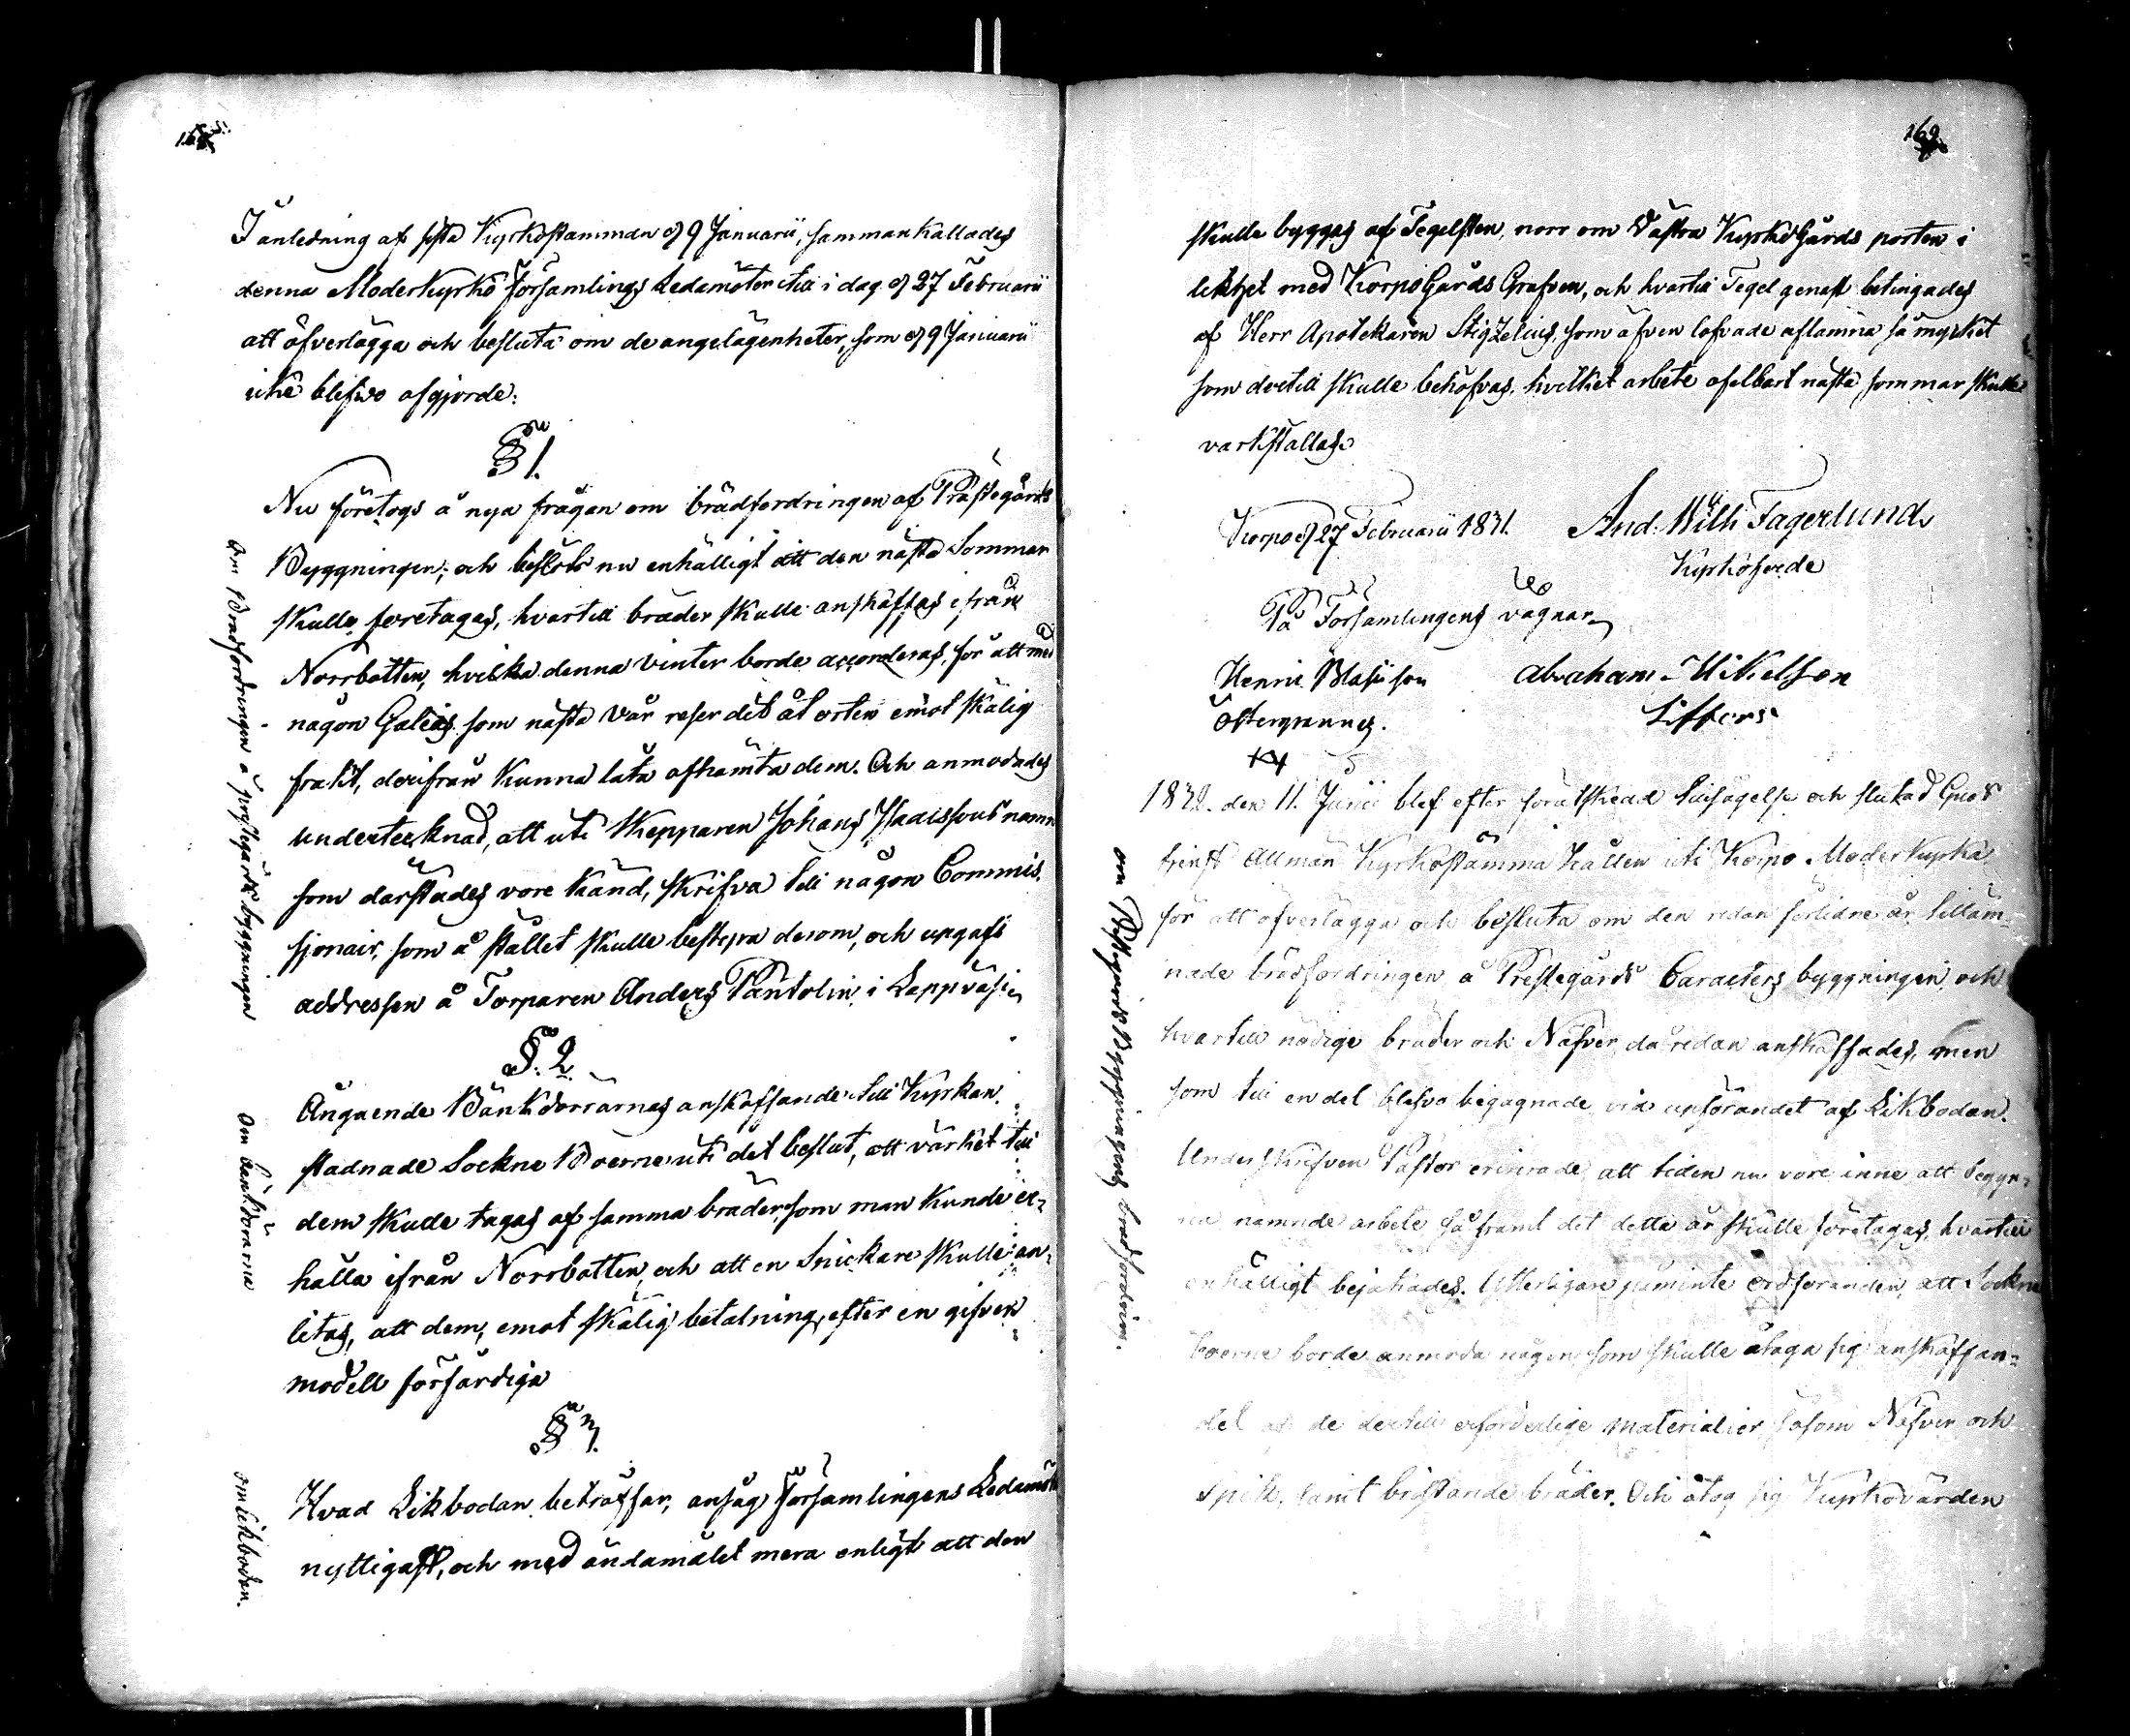 168.
I anledning af sista Kyrkostämman d 9 Januarii, sammankallades
denna Moderkyrko Församlings Ledamöter till i dag d 27 Februarii
att öfverlägga och besluta om de angelägenheter, som d 9 Januarii
icke blefwo afgjorde:
§ 1.
Nu företogs å nya frågan om brädfordringen af Prästegårds
Byggningen; och beslöts nu enhälligt att den nästa Sommar
skulle företagas, hvartill bräder skulle anskaffas ifrån
Norrbotten, hvilka denna Vinter borde accorderas, för att med
någon Galeas som nästa Vår reser dit åt orten emot skälig
frakt, derifrån kunna låta afhämta dem. Och anmodades
undertecknad, att uti Skepparen Johans namn
som därstädes vore känd, skrifva till någon Commis-
sjonair, som å stället skulle bestyra derom, och upgafs
addressen å Torparen Anders Pantolin i Lappväsi
Om Brädfordringen å prestgårds byggningen
§. 2.
Angående Bänkdörrarnas anskaffande till Kyrkan.
stadnade Sockne Boerne uti det beslut, att värket till
dem skulle tagas af samma bräder, som man kunde er-
hålla ifrån Norrbotten, och att en Snickare skulle an-
litas, att dem, emot skälig betalning, efter en gifven
modell förfärdiga
Om bänkdörarna
§ 3.
Hvad Likbodan beträffar, ansåg Församlingens Ledamöter
nyttigast, och med ändamålet mera enligt att den
om likboden.
169.
skulle byggas af Tegelsten, norr om Västra Kyrkogårds porten i
med KorpoGårds Grafven, och hvartill Tegel genast betingades
af Herr Apotekaren Stigzelius, som äfven lofvade aflämna så mycket
som dertill skulle behöfvas, hvilket arbete ofelbart nästa sommar skulle
värkställas.
Korpo d 27 Februarii 1831. And: Wilh Fagerlund
Kyrkoherde
På Församlingens vägnar
Henric Blasiison Abraham Mikelsson
Östergrannes. Liffors
1832. den 11. Junii blef efter förutskedd Pålysning och slutad Guds
tjenst Allmän Kyrkostämma hållen uti Korpo Moderkyrka
för att öfverlägga och besluta om den redan förlidne år tilläm-
nade brädfordringen å Prestegårds Caracters byggningen, och
hvartill nödige bräder och Näfver då redan anskaffades, men
som till en del blefvo begagnade vid upförandet af Likbodan.
Underskrifven Pastor erinrade att tiden nu vore inne att begyn-
na nämnde arbete såframt det detta år skulle företagas, hvartill
enhälligt bejakades. Ytterligare påminte ordföranden, att Sockne
boerne borde anmoda någon, som skulle åtaga sig anskaffan-
det af de dertill erforderlige materialier, såsom Näfver och
Spik, samt bristande bräder. Och åtog sig Kyrkovärden
om Prestgårds Byggningens brädfordring.